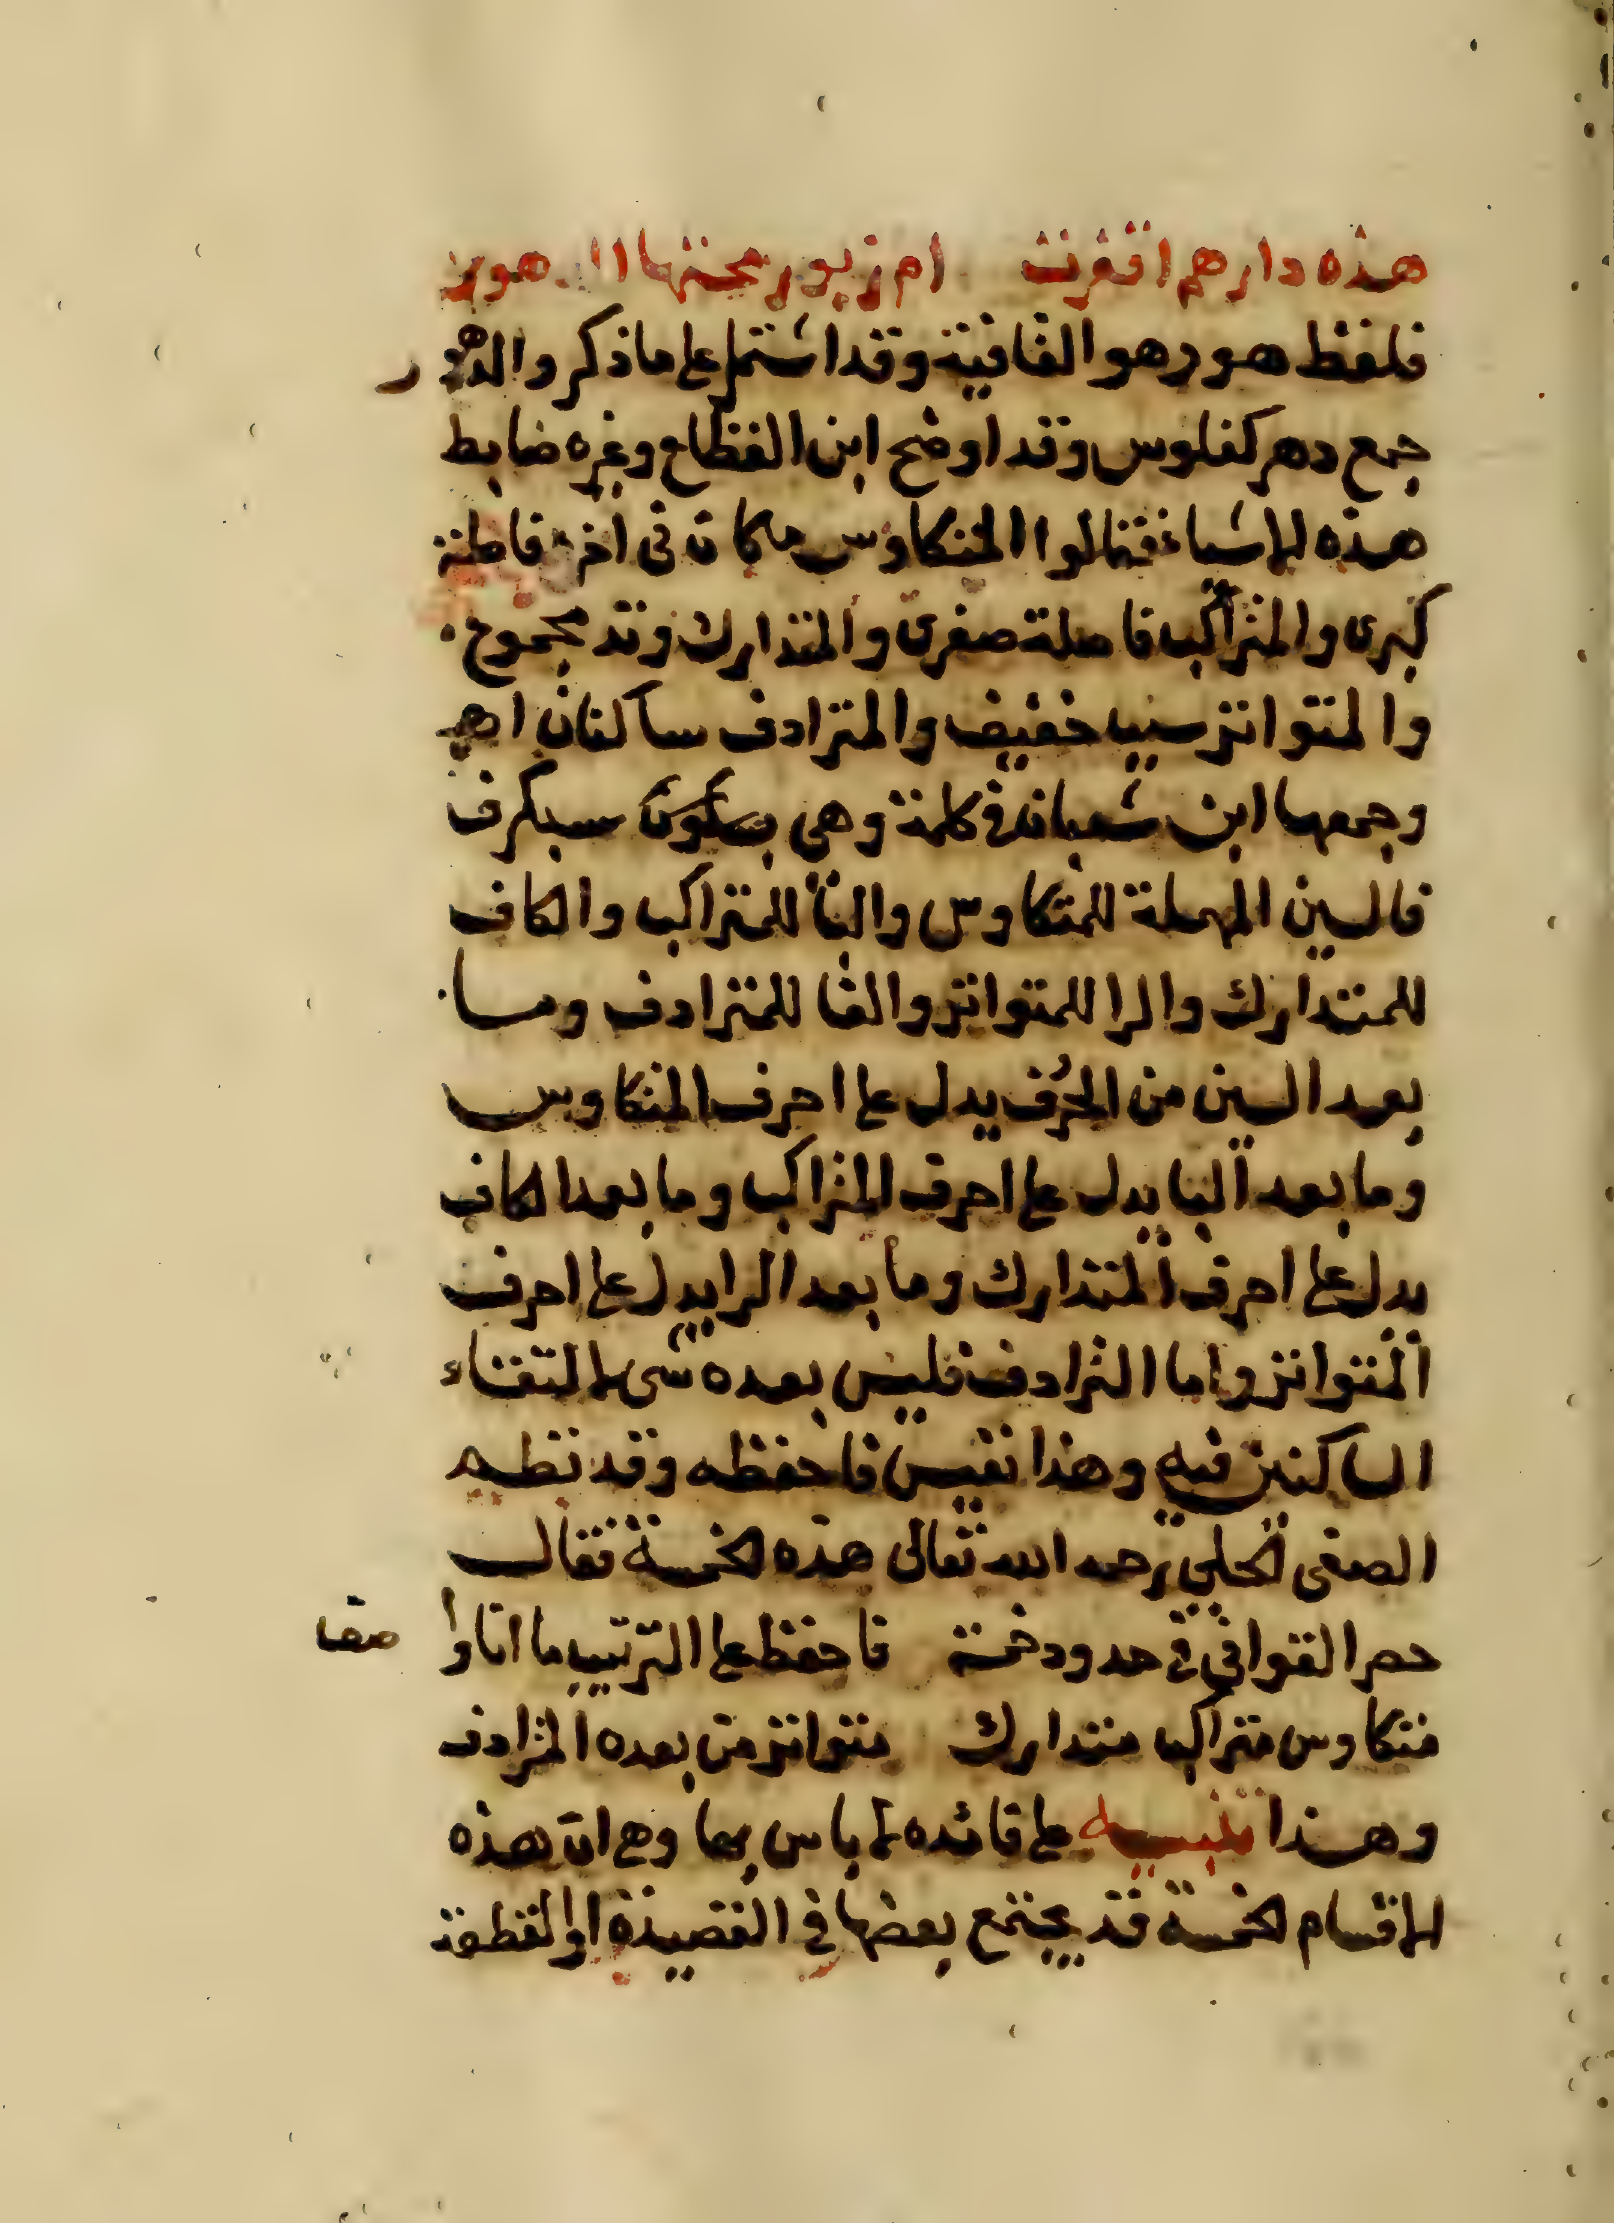 هذه دارهم اقفرت ام زبور محتها الدهور
فلفظ هور هو القافية وقد اشتمل على ما ذكر والدهور
جمع دهر كفلوس وقد اوضح ابن القطاع وغيره ضابط
هذه الاشياء فقالوا المتكاوس ما كان في اخره فاصلة
كبرى والمتراكب فاصلة صغرى والمتدارك وتد مجموع
والمتواتر سبب خفيف والمترادف ساكنان اهـ
وجمعها ابن شعبان في كلمة وهي سبكرف
فالسين المهملة للمتكاوس والبا للمتراكب والكاف
للمتدارك والرا للمتواتر والفا للمترادف وما
بعد السين من الحرف يدل على احرف المتكاوس
وما بعد البا يدل على احرف المتراكب وما بعد الكاف
يدل على احرف المتدارك وما بعد الرا يدل على احرف
المتواتر واما الترادف فليس بعده شى لالتقاء
الساكنين فيه وهذا نفيس فاحفظه وقد نظم
الصفى الحلي رحمه الله تعالى هذه الخمسة فقال
حصر القوافي في حدود خمسة فاحفظ على الترتيب ما انا واصف
متكاوس متراكب متدارك متواتر من بعده المترادف
وهذا تنبيه على فائده لا باس بها وهي ان هذه
الاقسام الخمسة قد يجتمع بعضها في القصيدة او القطعة